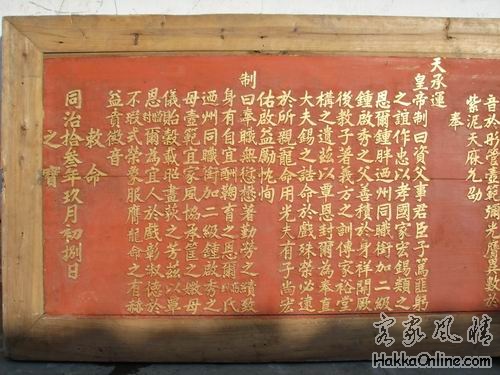 奉
天承運
皇帝制曰資父事君臣子篤匪躬
之誼作忠以孝國家宏錫類之
恩爾鍾胖迺州同職銜加二級
鍾啟秀之父善積於身祥開厥
後教子著義方之訓傳家裕堂
構之遺茲以覃恩封爾為奉直
大夫錫之誥命於戲殊榮必逮
於所親寵命用光夫有子尚宏
佑啟益勵忱恂
制曰奉職無愆懋著勤勞之績致
身有自宜酬鞠育之恩爾氏
迺州同職銜加二級鍾啟秀母
母壹範宜家風協承筐之媺母
儀胎穀載昭晝荻之芳茲以覃
恩封爾為宜人於戲彰淑德於
不瑕式榮象服膺龍命之有赫
益賁徽音
敕命
之寶
同治拾叁年玖月初捌日
客家風情
HakkaOnline.com